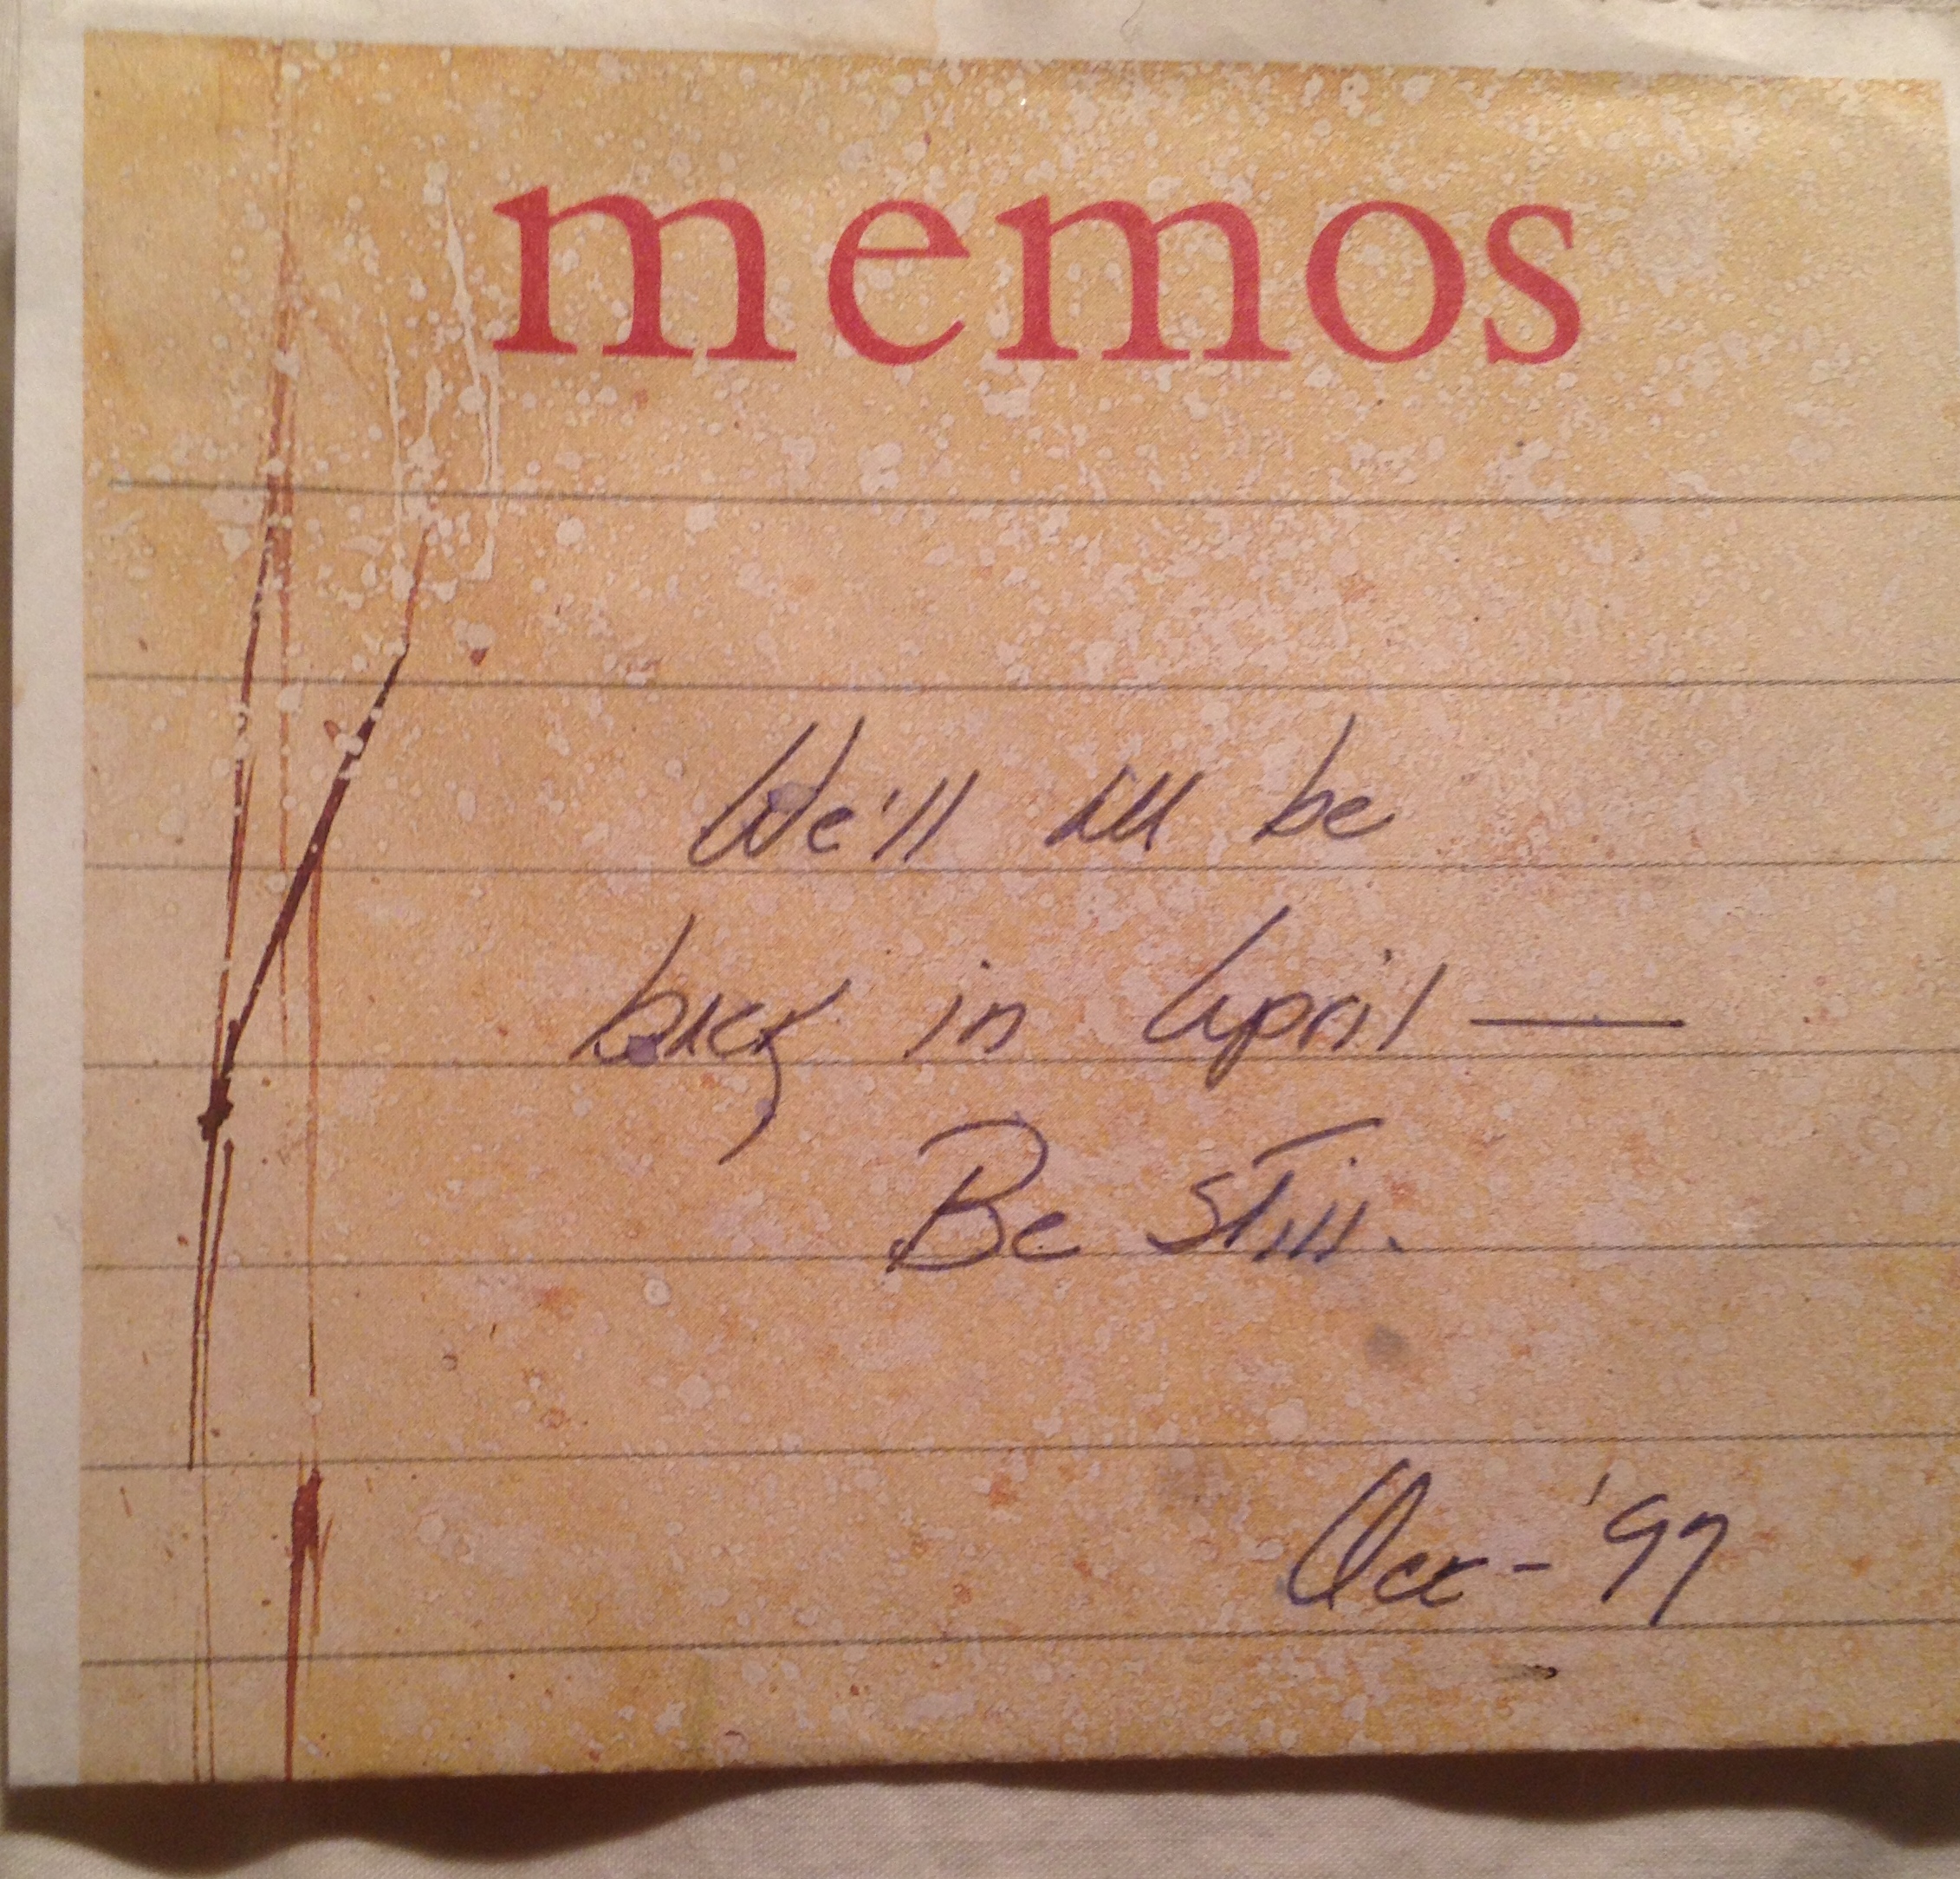 memos
We'll all be
back in April —
Be still.
Dec - '97